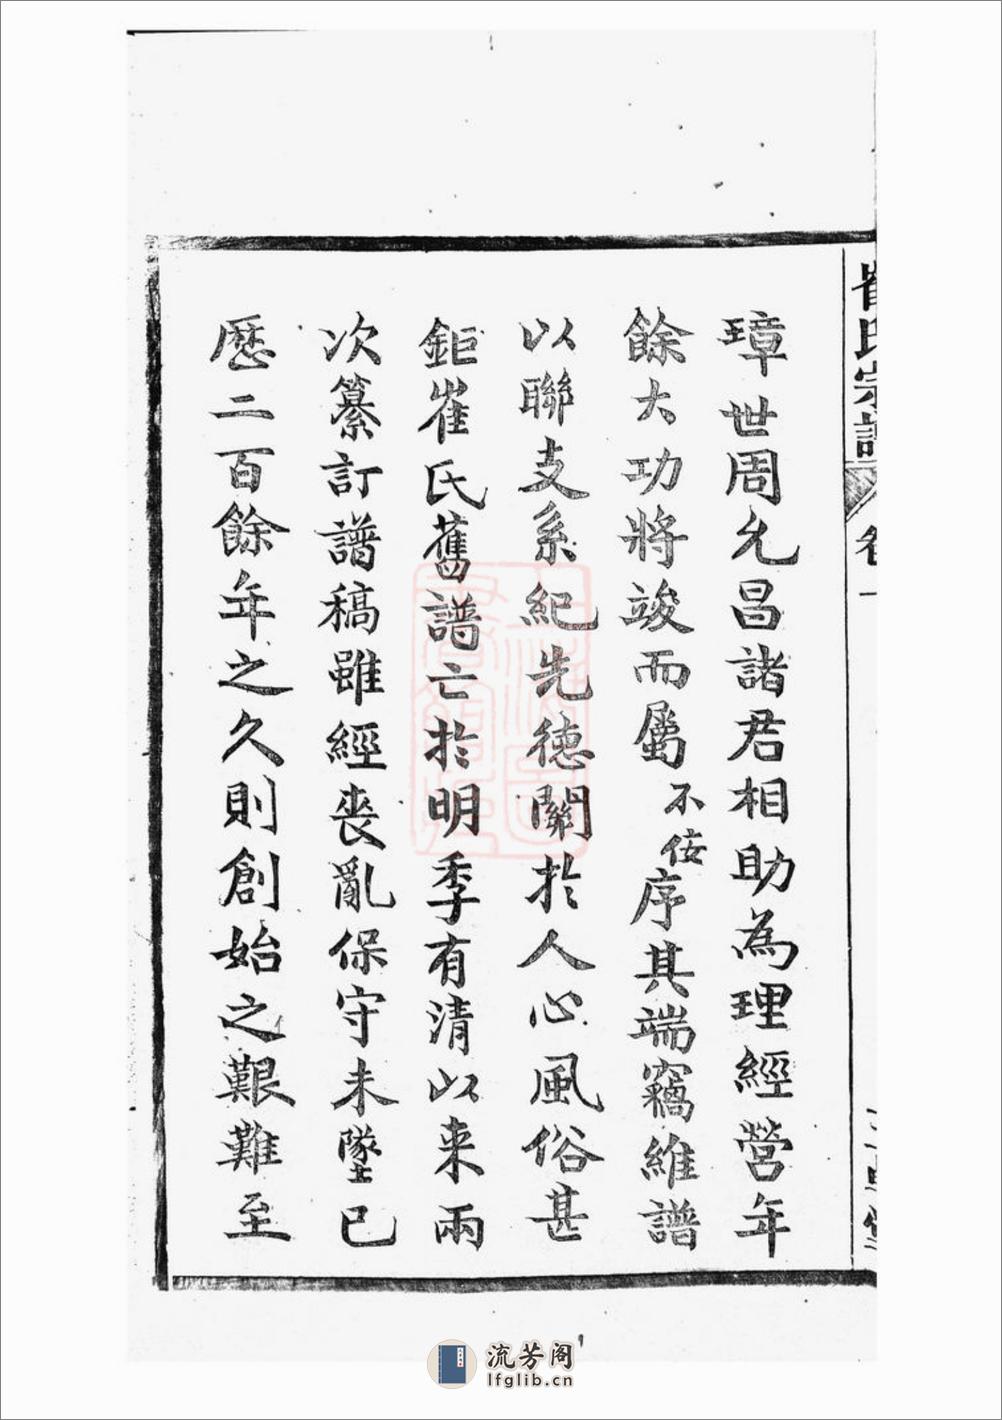 崔氏宗譜
卷一
璋世周允昌諸君相助為理經營年
餘大功將竣而屬不佞序其端竊維譜
以聯支系紀先德關於人心風俗甚
鉅崔氏舊譜亡於明季有清以来兩
次纂訂譜稿雖經喪亂保守未墜已
歷二百餘年之久則創始之艱難至
流芳阁
lfglib.cn